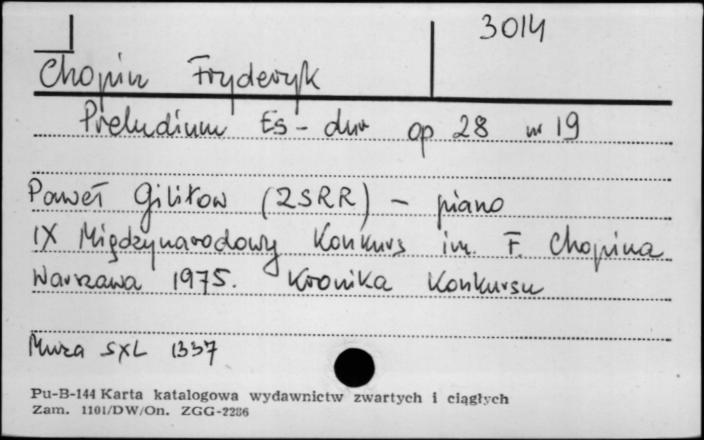 3014
Chopin Fryderyk
Preludium Es-dur op 28 nr 19
Paweł Giliłow (ZSRR) - piano
IX Międzynarodowy Konkurs im. F. Chopina
Warszawa 1975. Kronika Konkursu
Muza SXL 1337
Pu-B-144 Karta katalogowa wydawnictw zwartych i ciągłych
Zam. 1101/DW/On. ZGG-2286